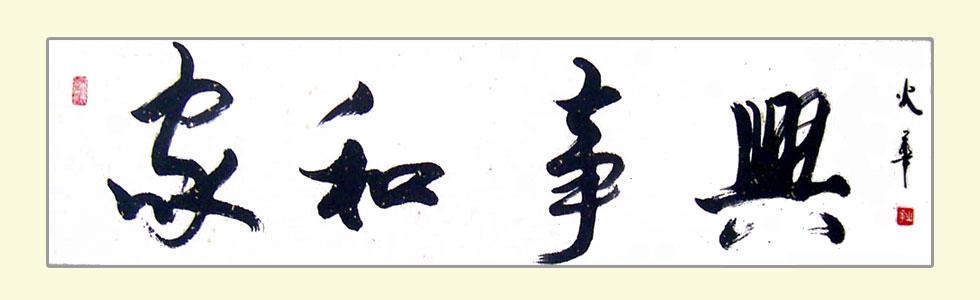 家和事興
火華